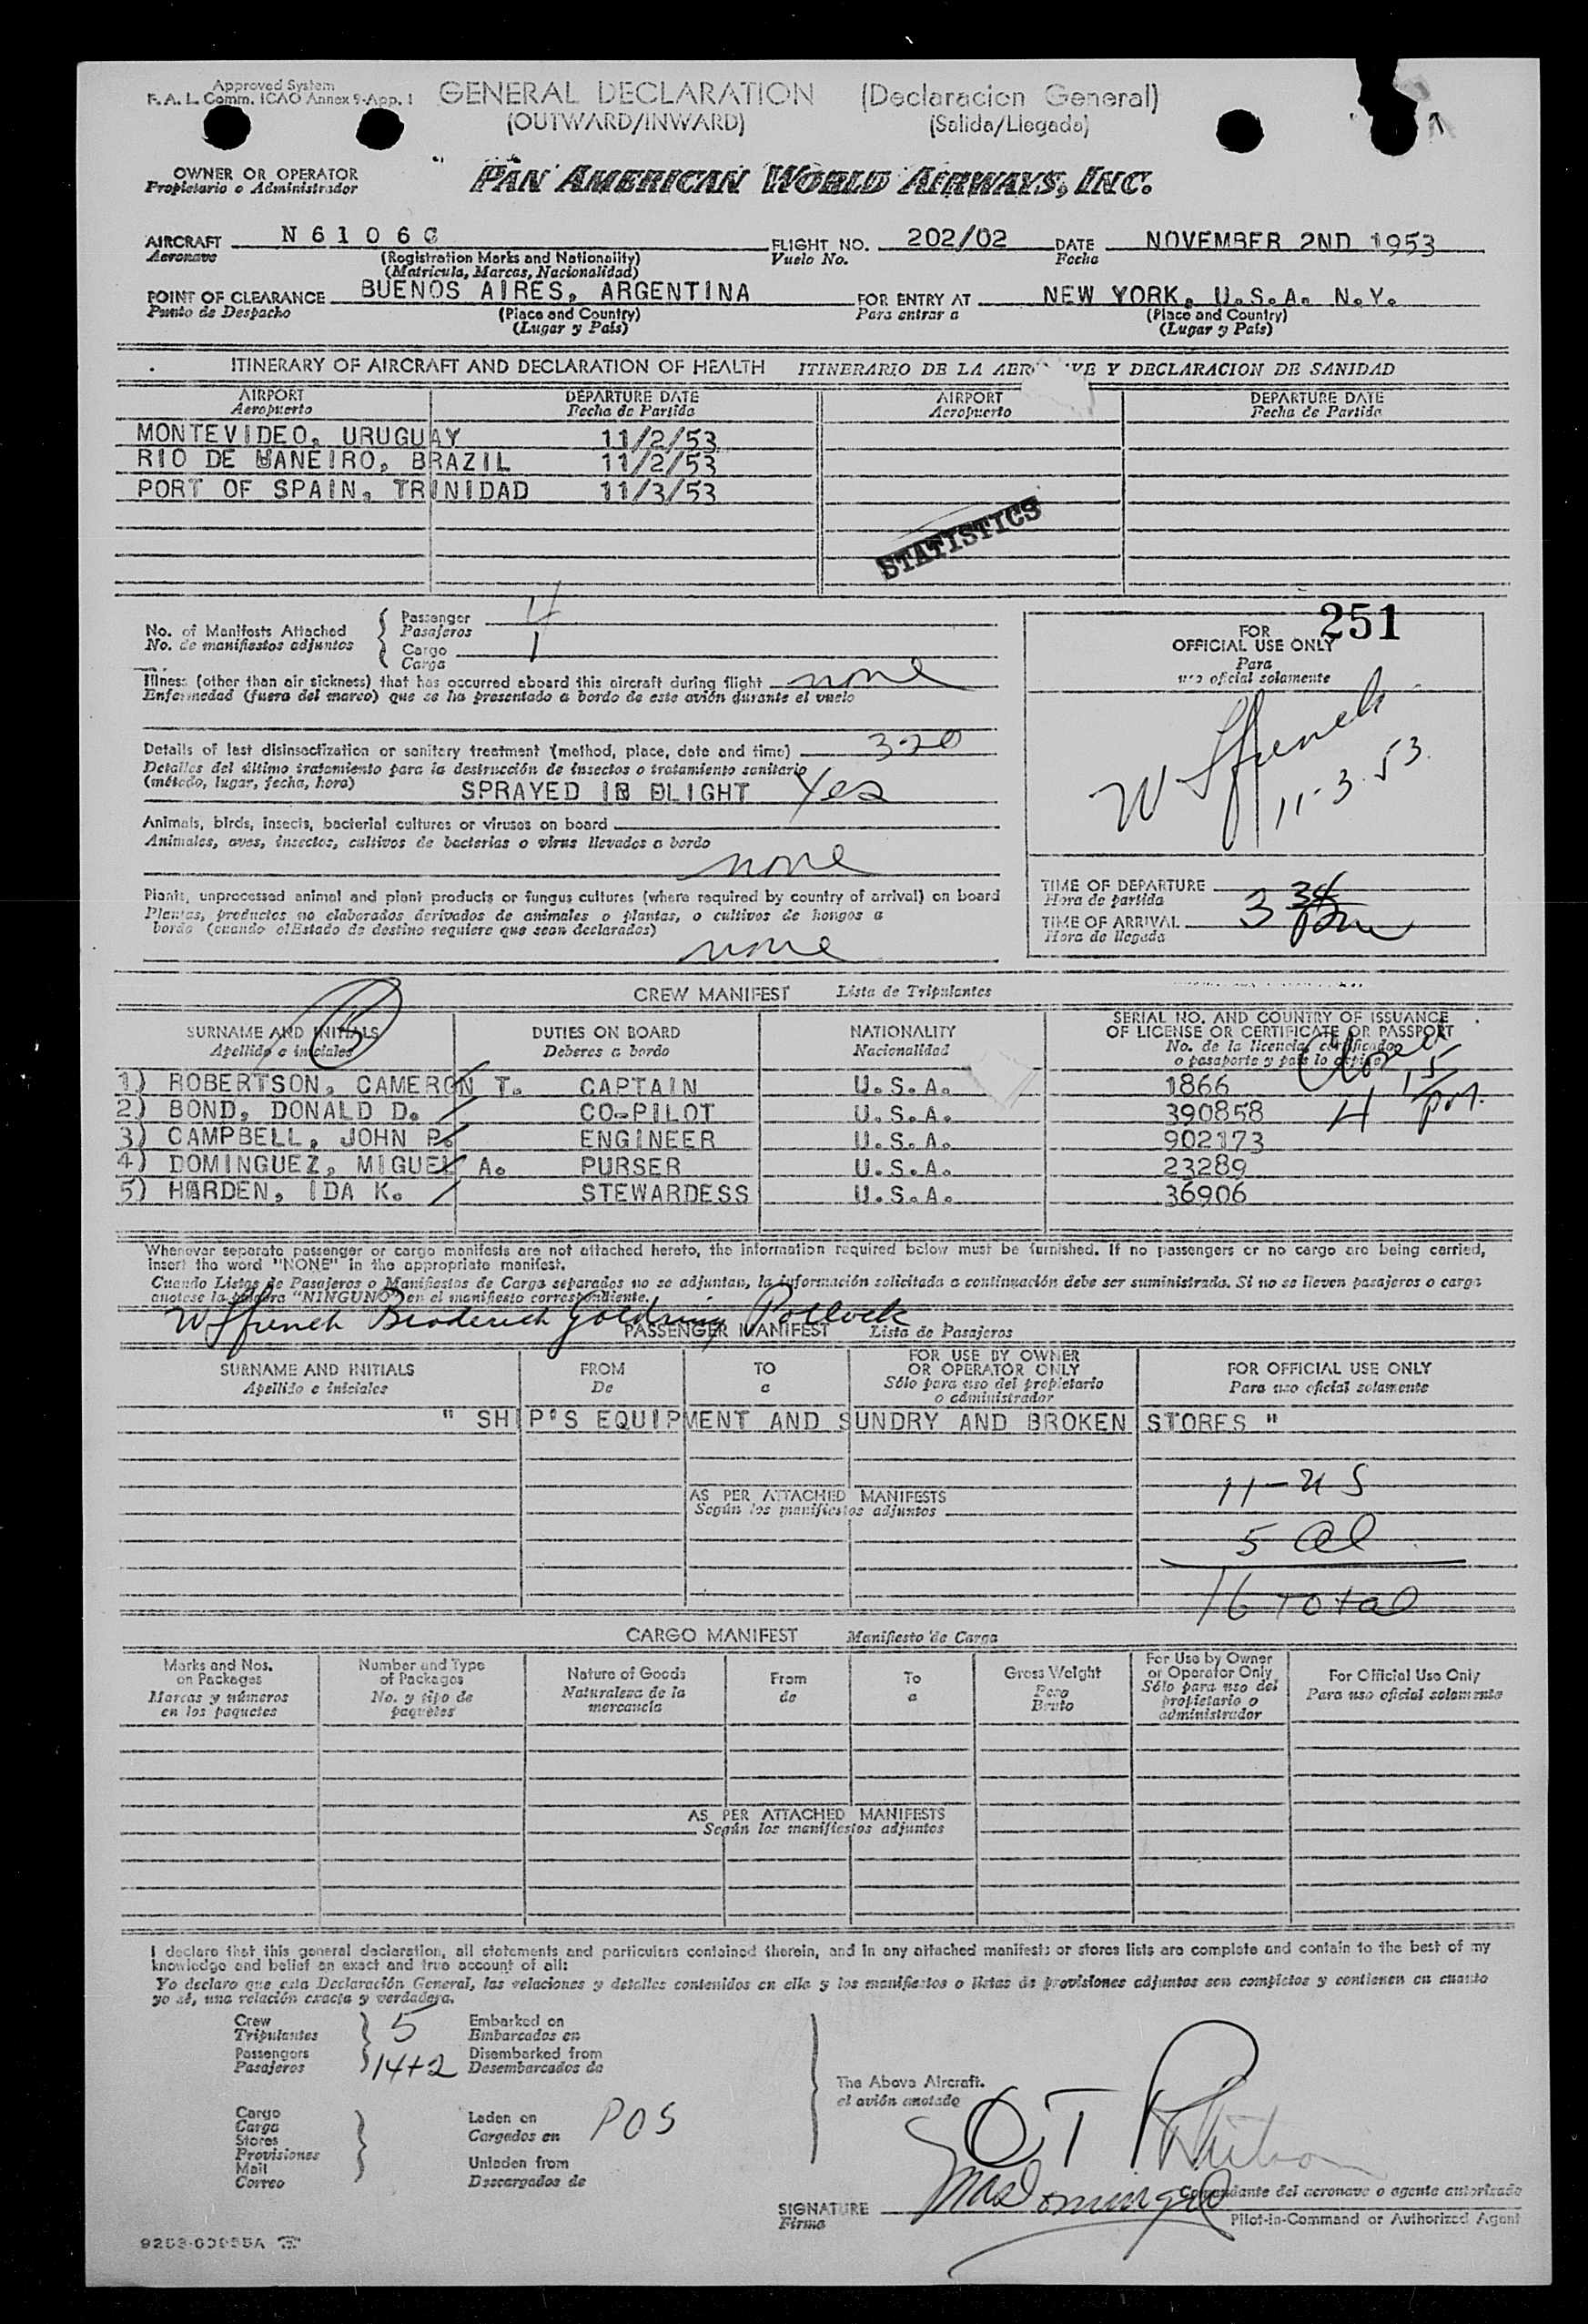 Approved System
F. A. L. Comm. ICAO Annex 9-App. 1
GENERAL DECLARATION (Declaracion General)
(OUTWARD/INWARD) (Salida/Llegada)
OWNER OR OPERATOR
Propietario o Administrador
PAN AMERICAN WORLD AIRWAYS, INC.
AIRCRAFT N 6 1 0 6 C FLIGHT NO. 202/02 DATE NOVEMBER 2ND 1953
Aeronave (Registration Marks and Nationality) Vuelo No. Fecha
(Matricula, Marcas, Nacionalidad)
POINT OF CLEARANCE BUENOS AIRES, ARGENTINA FOR ENTRY AT NEW YORK, U.S.A. N.Y.
Punto de Despacho (Place and Country) Para entrar a (Place and Country)
(Lugar y País) (Lugar y País)
ITINERARY OF AIRCRAFT AND DECLARATION OF HEALTH ITINERARIO DE LA AER VE Y DECLARACION DE SANIDAD
AIRPORT DEPARTURE DATE AIRPORT DEPARTURE DATE
Aeropuerto Fecha de Partida Aeropuerto Fecha de Partida
MONTEVIDEO, URUGUAY 11/2/53
RIO DE JANEIRO, BRAZIL 11/2/53
PORT OF SPAIN, TRINIDAD 11/3/53
STATISTICS
No. of Manifests Attached
No. de manifiestos adjuntos
Passenger 4
Pasajeros
Cargo 1
Carga
251
FOR
OFFICIAL USE ONLY
Para
uso oficial solamente
Illness (other than air sickness) that has occurred aboard this aircraft during flight none
Enfermedad (fuera del mareo) que se ha presentado a bordo de este avión durante el vuelo
Details of last disinsectization or sanitary treatment (method, place, date and time) 320
Detalles del último tratamiento para la destrucción de insectos o tratamiento sanitario
(método, lugar, fecha, hora) SPRAYED IN FLIGHT Yes
W Sffrench
11-3-53.
Animals, birds, insects, bacterial cultures or viruses on board
Animales, aves, insectos, cultivos de bacterias o virus llevados a bordo
none
Plants, unprocessed animal and plant products or fungus cultures (where required by country of arrival) on board
Plantas, productos no elaborados derivados de animales o plantas, o cultivos de hongos a
bordo (cuando el Estado de destino requiere que sean declarados)
none
TIME OF DEPARTURE
Hora de partida
TIME OF ARRIVAL 3 34 pm
Hora de llegada
CREW MANIFEST Lista de Tripulantes
5
SURNAME AND INITIALS DUTIES ON BOARD NATIONALITY SERIAL NO. AND COUNTRY OF ISSUANCE
OF LICENSE OR CERTIFICATE OR PASSPORT
Apellido e iniciales Deberes a bordo Nacionalidad No. de la licencia, certificado
o pasaporte y país lo expide
Closed
4 15 pm.
1) ROBERTSON, CAMERON T. CAPTAIN U.S.A. 1866
2) BOND, DONALD D. CO-PILOT U.S.A. 390858
3) CAMPBELL, JOHN P. ENGINEER U.S.A. 902173
4) DOMINGUEZ, MIGUEL A. PURSER U.S.A. 23289
5) HARDEN, IDA K. STEWARDESS U.S.A. 36906
Whenever separate passenger or cargo manifests are not attached hereto, the information required below must be furnished. If no passengers or no cargo are being carried,
insert the word "NONE" in the appropriate manifest.
Cuando Listas de Pasajeros o Manifiestos de Carga separados no se adjuntan, la información solicitada a continuación debe ser suministrada. Si no se lleven pasajeros o carga
anotese la palabra "NINGUNO" en el manifiesto correspondiente.
W Sffrench Broderick Goldring Pollock
PASSENGER MANIFEST Lista de Pasajeros
SURNAME AND INITIALS FROM TO FOR USE BY OWNER
OR OPERATOR ONLY FOR OFFICIAL USE ONLY
Apellido e iniciales De a Sólo para uso del propietario
o administrador Para uso oficial solamente
" SHIP'S EQUIPMENT AND SUNDRY AND BROKEN STORES "
11-US
AS PER ATTACHED MANIFESTS
Según los manifiestos adjuntos
5 Al
16 Total
CARGO MANIFEST Manifiesto de Carga
Marks and Nos.
on Packages
Marcas y números
en los paquetes
Number and Type
of Packages
No. y tipo de
paquetes
Nature of Goods
Naturaleza de la
mercancía
From
de
To
a
Gross Weight
Peso
Bruto
For Use by Owner
or Operator Only
Sólo para uso del
propietario o
administrador
For Official Use Only
Para uso oficial solamente
AS PER ATTACHED MANIFESTS
Según los manifiestos adjuntos
I declare that this general declaration, all statements and particulars contained therein, and in any attached manifests or stores lists are complete and contain to the best of my
knowledge and belief an exact and true account of all:
Yo declaro que esta Declaración General, las relaciones y detalles contenidos en ella y los manifiestos o listas de provisiones adjuntos son completos y contienen en cuanto
yo sé, una relación exacta y verdadera.
Crew 5 Embarked on
Tripulantes Embarcados en
Passengers 14+2 Disembarked from
Pasajeros Desembarcados de
The Above Aircraft.
el avión anotado
Cargo
Carga
Stores
Provisiones
Mail
Correo
Laden on POS
Cargados en
Unladen from
Descargados de
SIGNATURE
Firma
Comandante del aeronave o agente autorizado
Pilot-in-Command or Authorized Agent